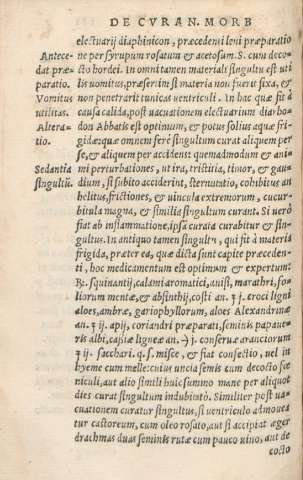 DE CVRAN. MORB
electuarij diaphinicon, præcedenti leni præparatio
Antece-
dat præ-
paratio.
ne per syrupum rosatum & acetosum. S. cum deco-
cto hordei. In omni tamen materiali singultu est uti
lis uomitus, præsertim si materia non fuerit fixa, &
Vomitus
utilitas.
non penetrarit tunicas uentriculi. In hac quæ fit à
causa calida, post uacuationem electuarium diarho-
Altera-
tio.
don Abbatis est optimum, & potus solius aquæ fri-
gidæ: quæ omnem ferè singultum curat aliquem per
se, & aliquem per accidens: quemadmodum & ani
Sedantia
singultū.
mi perturbationes, utira, tristitia, timor, & gau-
dium, si subito acciderint, sternutatio, cohibitus an
helitus, frictiones, & uincula extremorum, cucur-
bitula magna, & similia singultum curant. Si uerò
fiat ab inflammatione, ipsa curata curabitur & sin-
gultus. In antiquo tamen singultu, qui fit à materia
frigida, præter ea, quæ dicta sunt capite præceden-
ti, hoc medicamentum est optimum & expertum:
℞. squinanti, calami aromatici, anisi, marathri, fo-
liorum mentæ, & absinthij, costi an. ʒ j. croci ligni
aloes, ambræ, gariophyllorum, aloes Alexandrinæ
an. ʒ ij. apij, coriandri præparati, seminis papaue-
ris albi, cassiæ ligneæ an. j. conseruæ arantiorum
ʒ ij. sacchari. q. s. misce, & fiat confectio, uel in
hyeme cum melle: cuius uncia semis cum decocto fœ
niculi, aut alio simili huic summo mane per aliquot
dies curat singultum indubitatò. Similiter post ua-
cuationem curatur singultus, si uentriculo admouea
tur castoreum, cum oleo rosato, aut si accipiat æger
drachmas duas seminis rutæ cum pauco uino, aut de
cocto